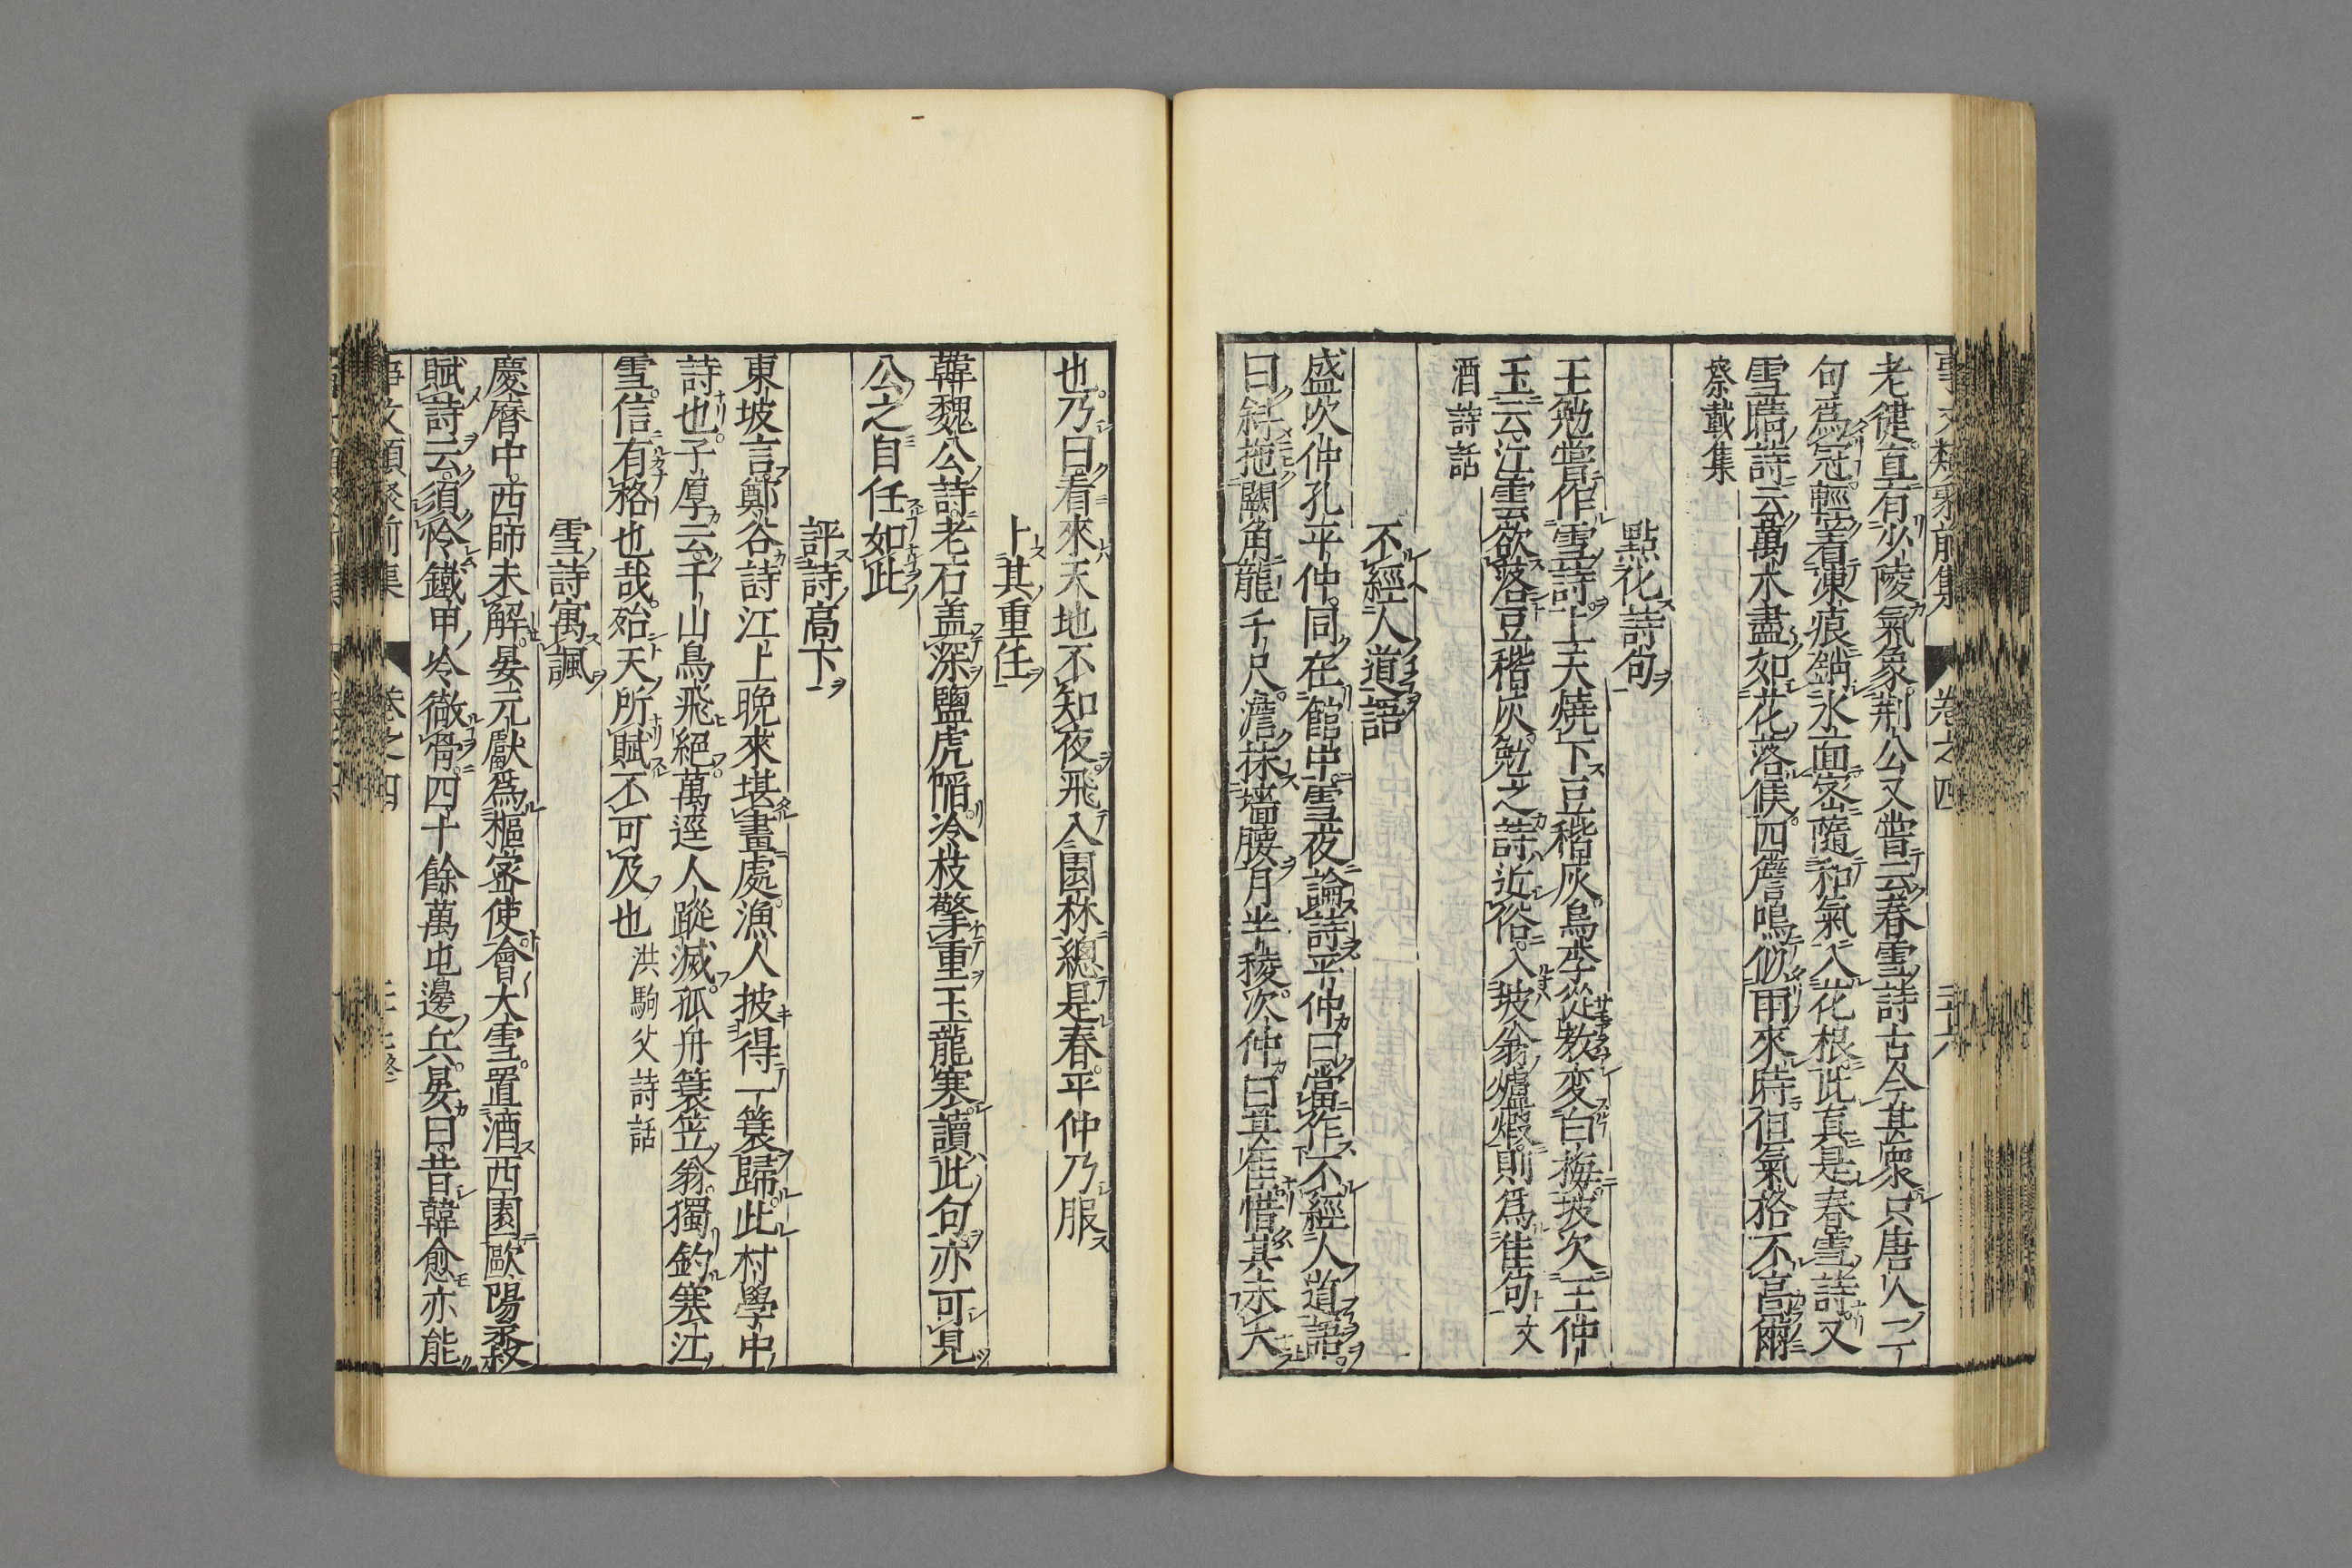 老健直有少陵氣象荆公又嘗云春雪詩古今甚衆只唐人一二
句爲冠輕著凍痕銷水面密隨和氣入花根此真是春雪詩又
雪晴詩云萬木盡如花落後四簷鳴似雨來時但氣格不高爾
蔡載集
點化詩句
王勉嘗作雪詩上天燒下豆稭灰烏李從教变白梅坡次王仲
玉云江雲欲落豆稭灰勉之詩近俗入坡翁爐煅則爲佳句文
酒詩話
不經人道語
盛次仲孔平仲同在館中雪夜論詩平仲曰當作不經人道語
曰斜拖闕角龍千尺澹抹墻腰月半稜次仲曰甚佳惜其未大
也乃曰看來天地不知夜飛入園林總是春平仲乃服
卜其重任
韓魏公詩老石盖深鹽虎䧟冷枝擎重玉龍寒讀此句亦可見
公之自任如此
評詩高下
東坡言鄭谷詩江上晩來堪畫處漁人披得一簑歸此村學中
詩也子厚云千山鳥飛絕萬逕人蹤滅孤舟簑笠翁獨釣寒江
雪信有格也哉殆天所賦不可及也洪駒父詩話
雪詩寓諷
慶曆中西師未解晏元獻爲樞密使會大雪置酒西園歐陽
賦詩云須怜鐵甲冷徹骨四十餘萬屯邊兵晏曰昔韓愈亦能